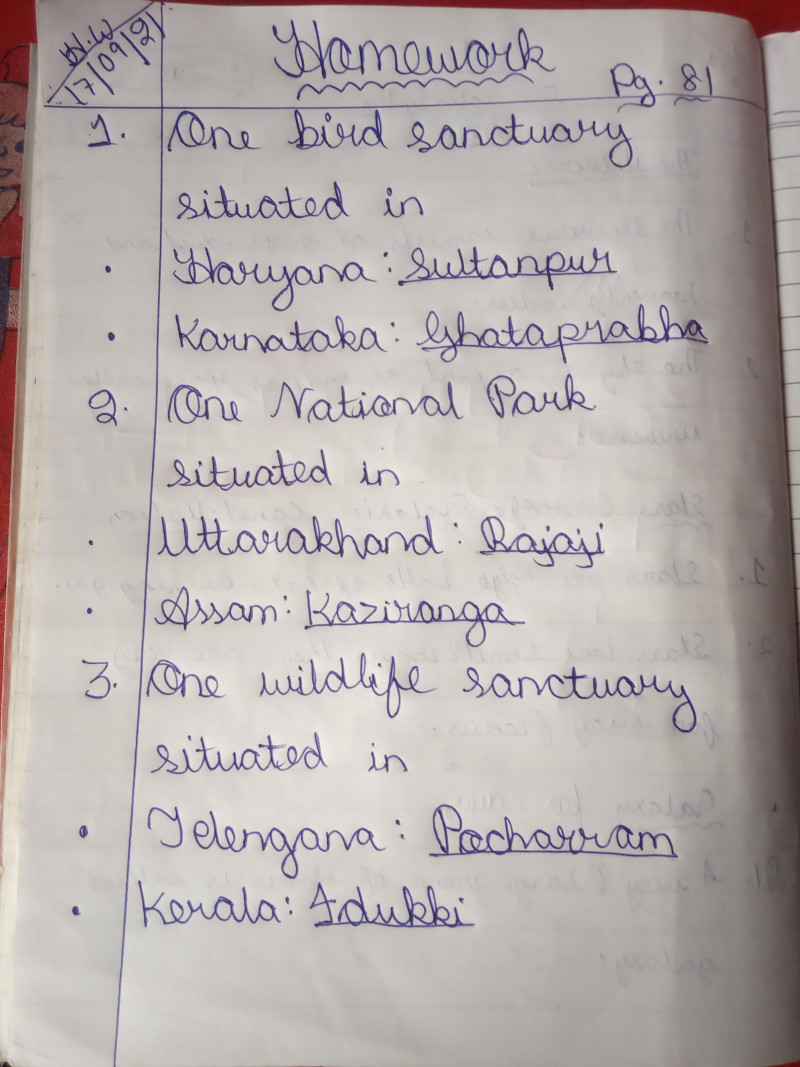 H.W
17/09/21
Homework
Pg. 81
1. One bird sanctuary
situated in
• Haryana: Sultanpur
• Karnataka: Ghataprabha
2. One National Park
situated in
• Uttarakhand: Rajaji
• Assam: Kaziranga
3. One wildlife sanctuary
situated in
• Telengana: Pocharram
• Kerala: Idukki